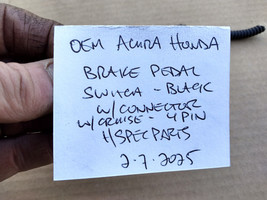 OEM ACURA HONDA
BRAKE PEDAL
SWITCH - BLACK
W/ CONNECTOR
W/ CRUISE - 4 PIN
HSPECPARTS
2.7.2025